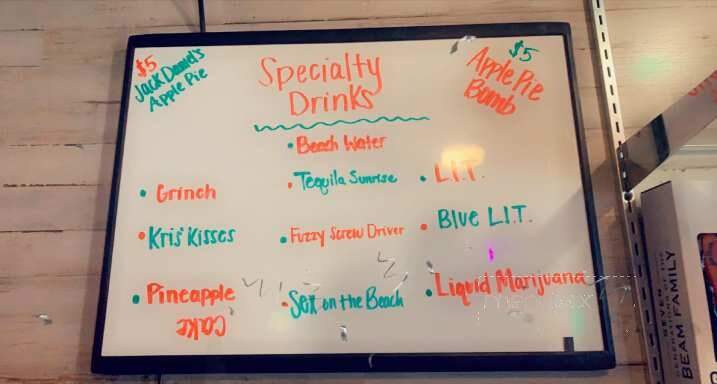 $5
Jack Daniel's
Apple Pie
Specialty
Drinks
$5
Apple Pie
Bomb
• Beach Water
• Grinch
• Tequila Sunrise
• L.I.T.
• Kris' Kisses
• Fuzzy Screw Driver
• Blue L.I.T.
• Pineapple
Cake
• Sex on the Beach
• Liquid Marijuana
SEVEN
GENERATIONS OF THE
BEAM FAMILY